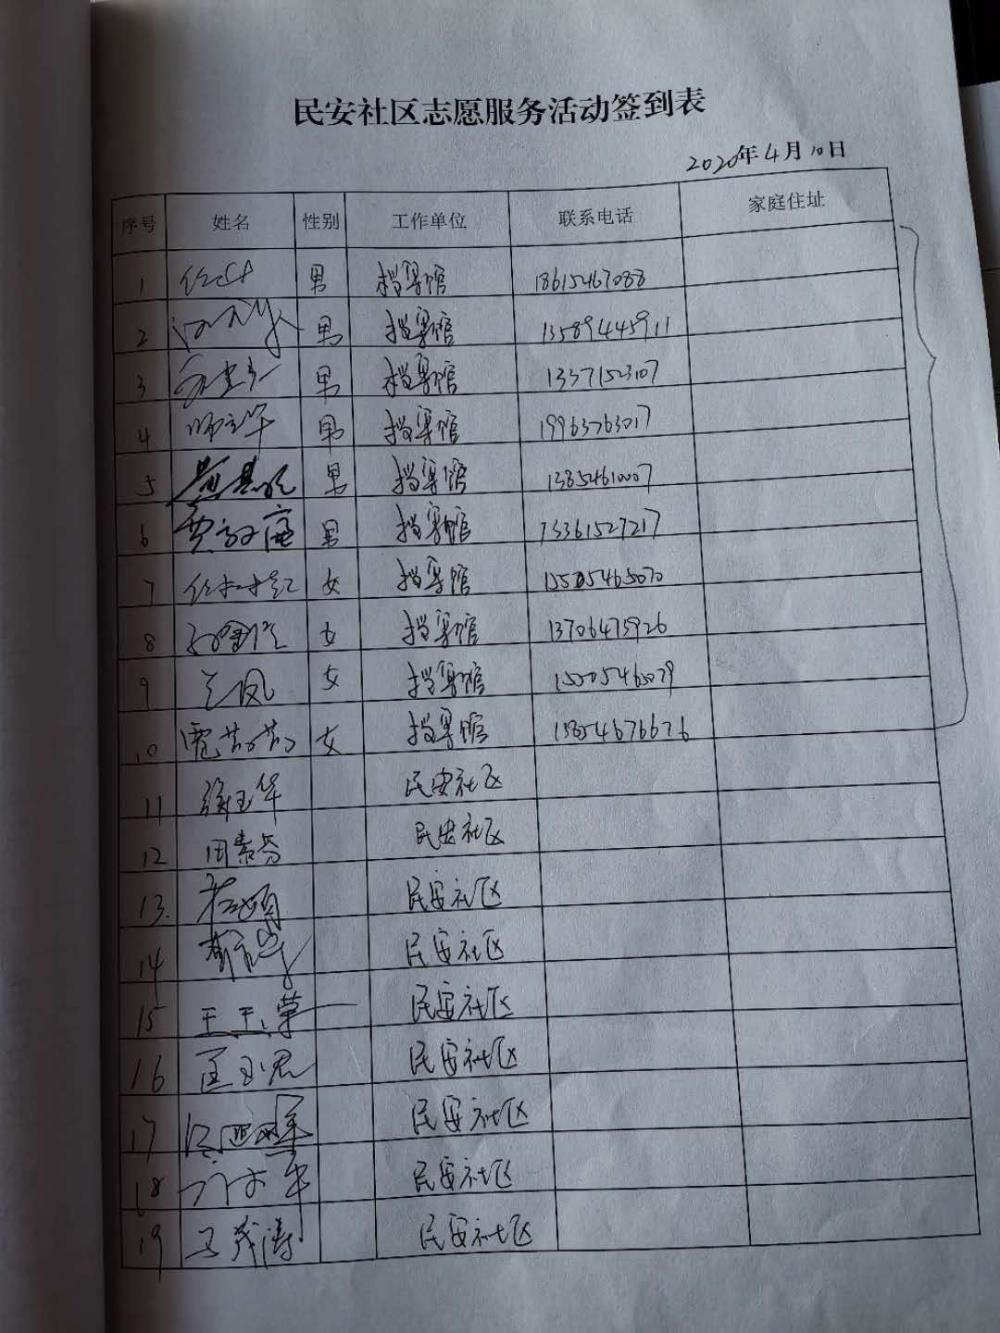 民安社区志愿服务活动签到表
2020年4月10日
序号 姓名 性别 工作单位 联系电话 家庭住址
1 男 档案馆 18615467088
2 男 档案馆 13589445911
3 男 档案馆 13371523107
4 师立华 男 档案馆 19963763017
5 男 档案馆 13854610007
6 贾敬庵 男 档案馆 13361527217
7 任林红 女 档案馆 15505465070
8 女 档案馆 13706475926
9 兰凤 女 档案馆 15505465079
10 苗苗 女 档案馆 15854676676
11 徐玉华 民安社区
12 周素芬 民安社区
13. 民安社区
14 民安社区
15 王玉荣 民安社区
16 民安社区
17 民安社区
18 民安社区
19 马茂涛 民安社区